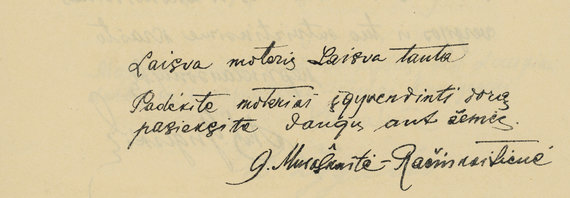 Laisva moteris Laisva tauta
Padėkite moteriai įgyvendinti dorą
pasieksite dangų ant žemės.
O. Murašk​aitė-Račiukaitienė